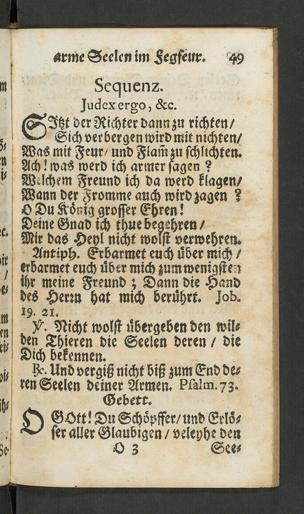 arme Seelen im Fegfeur. 49
Sequenz.
Judex ergo, &c.
SItzt der Richter dann zu richten/
Sich verbergen wird mit nichten/
Was mit Feur/ und Flam̃ zu schlichten.
Ach! was werd ich armer sagen?
Welchem Freund ich da werd klagen/
Wann der Fromme auch wird zagen?
O Du König grosser Ehren!
Deine Gnad ich thue begehren/
Mir das Heyl nicht wolst verwehren.
Antiph. Erbarmet euch über mich/
erbarmet euch über mich zum wenigsten
ihr meine Freund; Dann die Hand
des Herrn hat mich berührt. Job.
19. 21.
℣. Nicht wolst übergeben den wil-
den Thieren die Seelen deren/ die
Dich bekennen.
℟. Und vergiß nicht biß zum End de-
ren Seelen deiner Armen. Psalm. 73.
Gebett.
O GOtt! Du Schöpffer/ und Erlö-
ser aller Glaubigen/ veleyhe den
O 3 See-